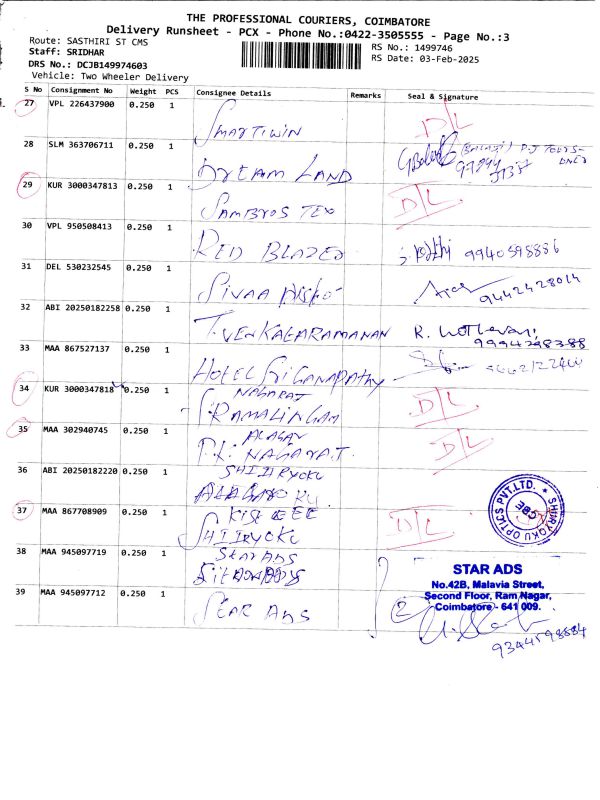 THE PROFESSIONAL COURIERS, COIMBATORE
Delivery Runsheet - PCX - Phone No.:0422-3505555 - Page No.:3
Route: SASTHIRI ST CMS
RS No.: 1499746
Staff: SRIDHAR
RS Date: 03-Feb-2025
DRS No.: DCJB149974603
Vehicle: Two Wheeler Delivery
S No Consignment No Weight PCS Consignee Details Remarks Seal & Signature
27 VPL 226437900 0.250 1 SMARTIWIN D/L
28 SLM 363706711 0.250 1 DREAM LAND
29 KUR 3000347813 0.250 1 SAMBROS TEX D/L
30 VPL 950508413 0.250 1 RED BLAZED 9940598886
31 DEL 530232545 0.250 1 SIVAA 9442428014
32 ABI 20250182258 0.250 1 T. VENKATARAMANAN R. 9994298388
33 MAA 867527137 0.250 1 HOTEL SRI GANAPATHY
34 KUR 3000347818 0.250 1 NAGARAJ
RAMALINGAM D/L
35 MAA 302940745 0.250 1 ALAGAR
NAGARAJ D/L
36 ABI 20250182220 0.250 1 SHIIRYOKU
SHIRYOKU OPTICS PVT.LTD. CBE
37 MAA 867708909 0.250 1
SHIIRYOKU D/L
38 MAA 945097719 0.250 1 STAR ADS
39 MAA 945097712 0.250 1 STAR ADS
STAR ADS
No.42B, Malavia Street,
Second Floor, Ram Nagar,
Coimbatore - 641 009.
2
9344598884